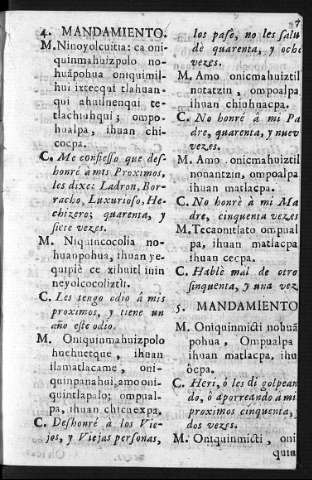 7
4. MANDAMIENTO.
M. Ninoyolcuitia: ca oni-
quinmahuizpolo no-
huãpohua oniquimil-
hui ixtecqui tlahuan-
qui ahuilnenqui te-
tlachihuhqui; ompo-
hualpa, ihuan chi-
cocpa.
C. Me confiesso que des-
honrè à mis Proximos,
les dixe: Ladron, Bor-
racho, Luxurioso, He-
chizero; quarenta, y
siete vezes.
M. Niquincocolia no-
huanpohua, ihuan ye-
quipiè ce xihuitl inin
neyolcocoliztli.
C. Les tengo odio à mis
proximos, y tiene un
año este odio.
M. Oniquinmahuizpolo
huehuetque, ihuan
ilamatlacame, oni-
quinpanahui, amo oni-
quintlapalo; ompual-
pa, ihuan chicuexpa.
C. Deshonrè à los Vie-
jos, y Viejas personas,
los pase, no les salu
dè quarenta, y ocho
vezes.
M. Amo onicmahuiztil
notatzin, ompoalpa
ihuan chiuhnacpa.
C. No honrè à mi Pa
dre, quarenta, y nuev
vezes.
M. Amo onicmahuiztil
nonantzin, ompoalpa
ihuan matlacpa.
C. No honrè à mi Ma
dre, cinquenta vezes
M. Tecaonitlato ompual
pa, ihuan matlacpa
ihuan cecpa.
C. Hablè mal de otro
cinquenta, y una vez
5. MANDAMIENTO
M. Oniquinmicti nohuã
pohua, Ompualpa
ihuan matlacpa, ihu
òcpa.
C. Heri, ò les di golpean
do, ò aporreando à mi
proximos cinquenta,
dos vezes.
M. Oniquinmicti, oni
quin